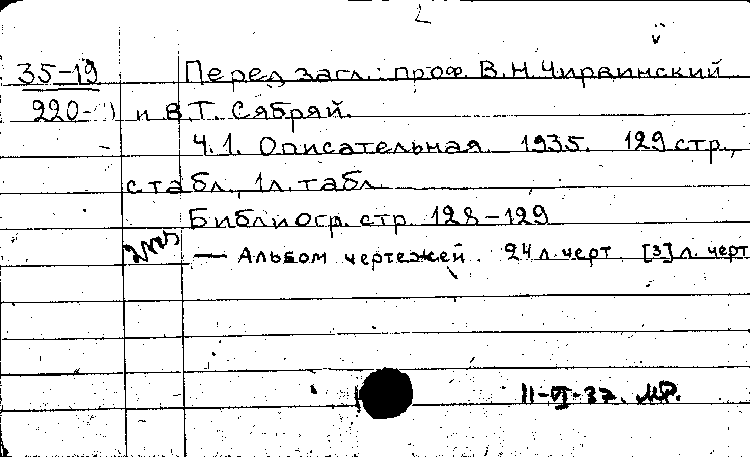 2
35-19 Перед загл.: проф. В.Н. Чирвинский
220- и В.Т. Сябряй.
Ч.1. Описательная. 1935. 129 стр.,
с табл., 1 л. табл.
Библиогр. стр. 128-129
— Альбом чертежей. 24 л. черт. [3] л. черт
11-VI-37. МР.